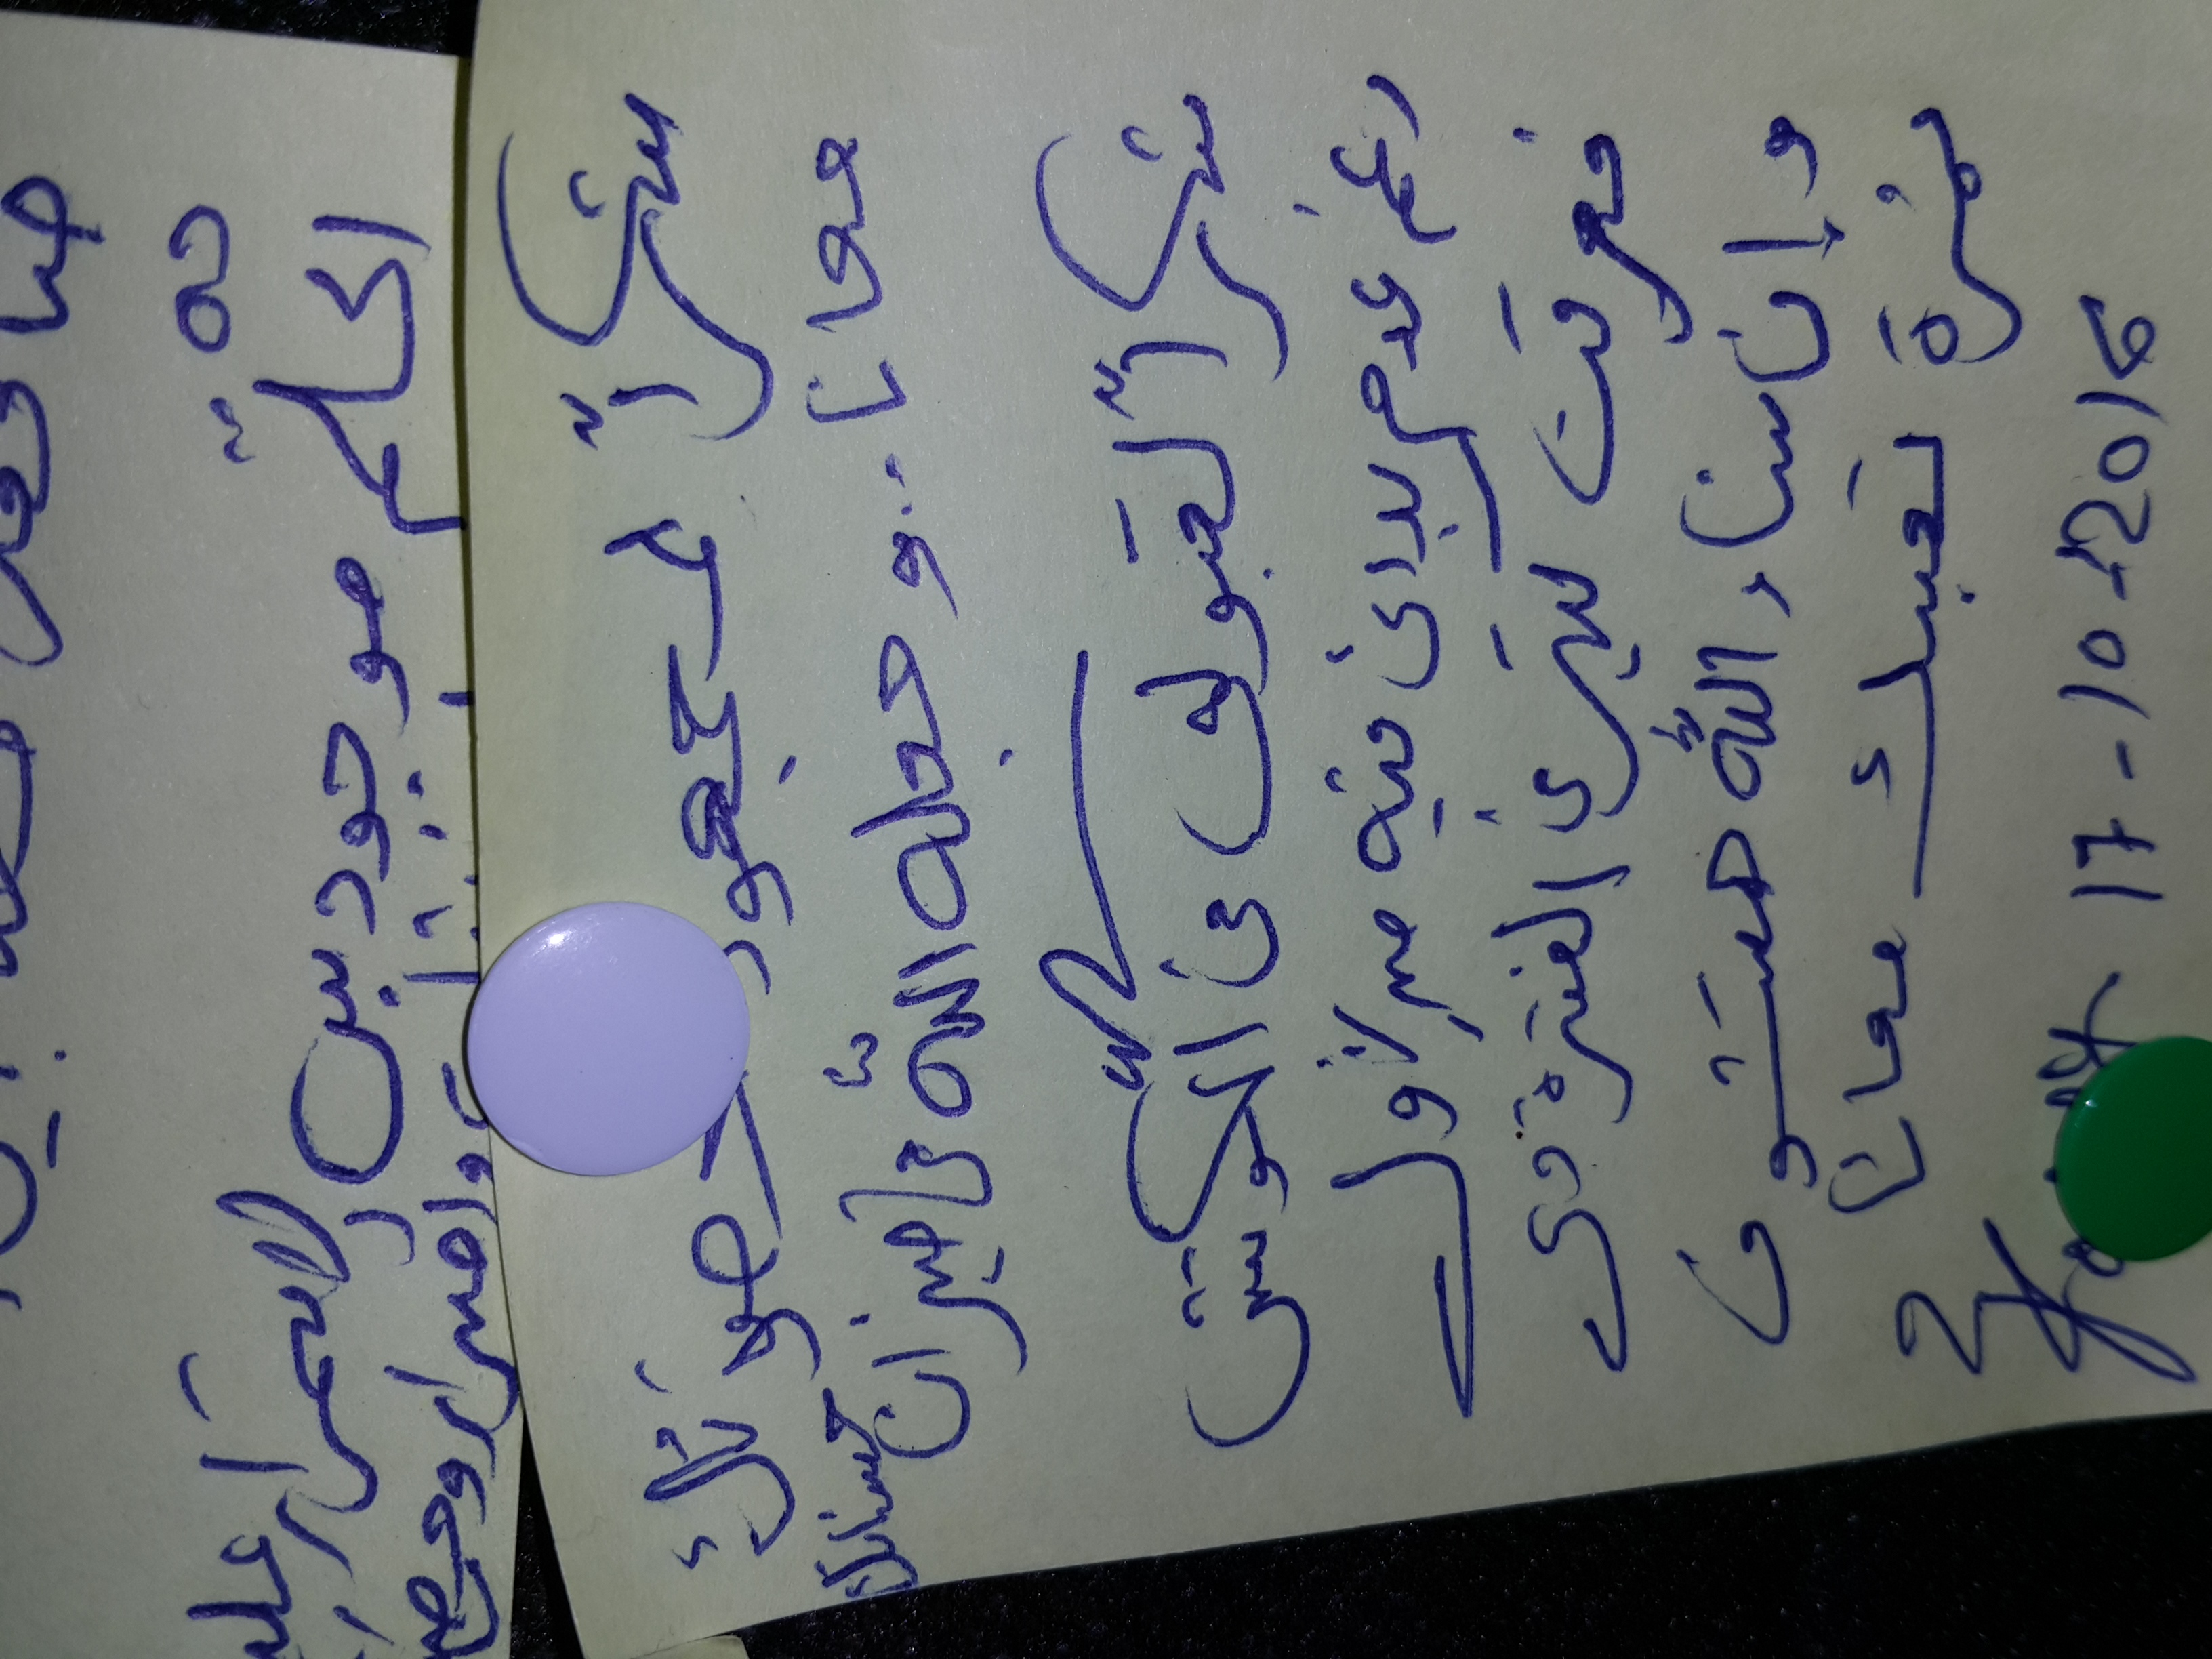 ده
الحلم موجود بس الاستمرار عليه
واصرار
شكراً لمجهود حضرتك
معانا .. وجعله الله فى ميزان حسناتك
شكراً لقبولى فى الكوتش
رغم عدم بدائى فيه من الأول
فعرفت كتير فى الفترة دى
و إن شاء الله هتشوف
ثمرة تعبك معانا
17-10-2016